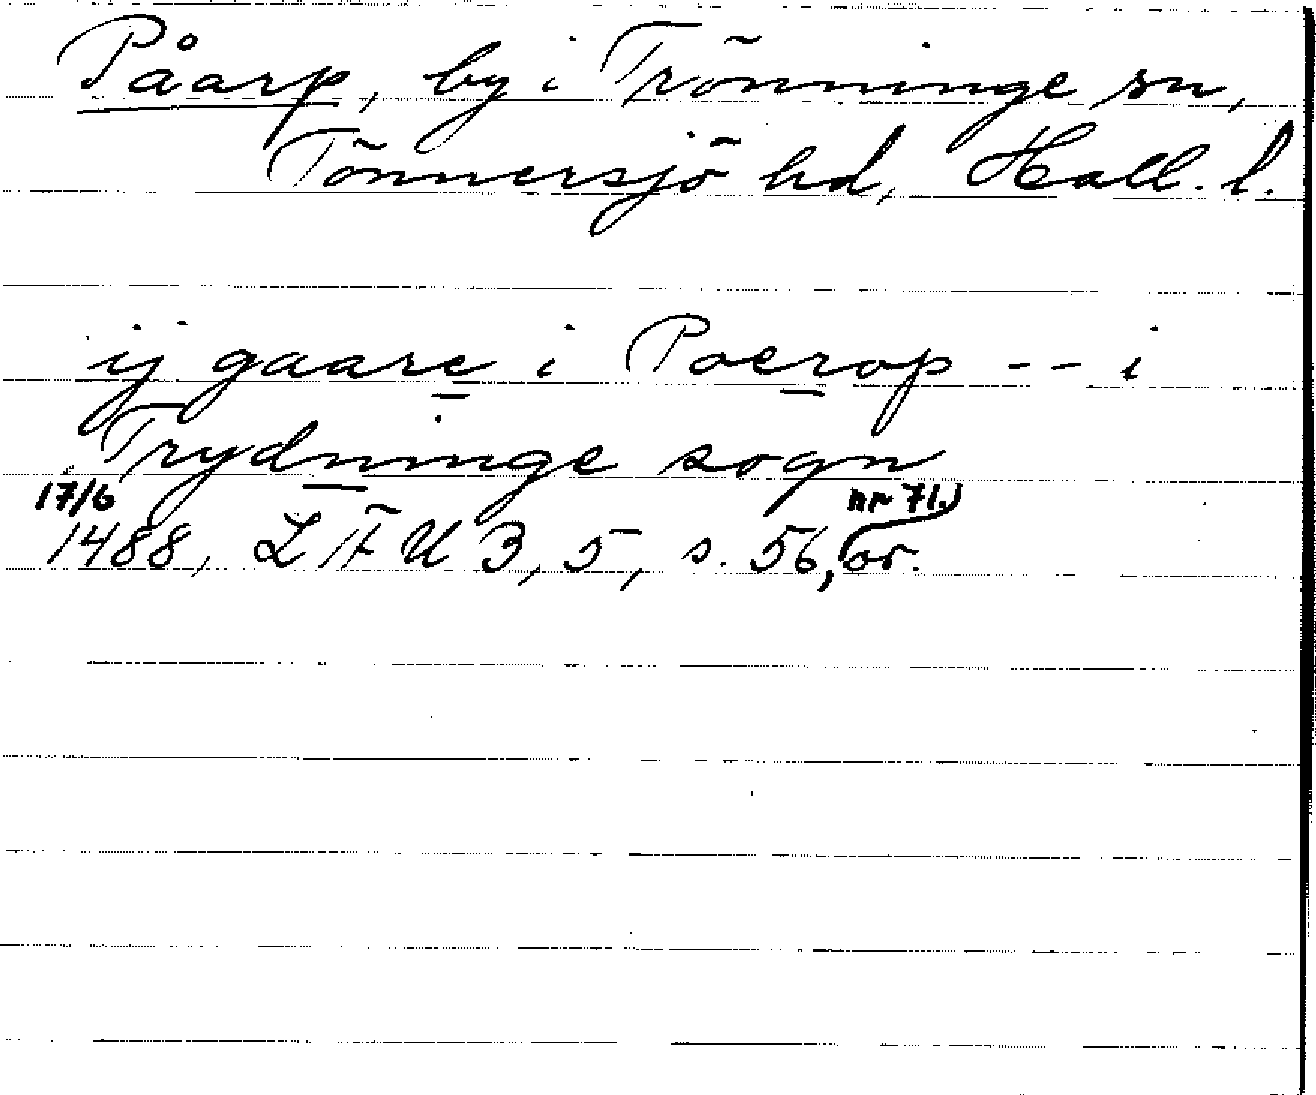 Påarp, by i Trönninge sn,
Tönnersjö hd, Hall. l.
ij gaare i Poerop -- i
Trydninge sogn
17/6 nr 71.)
1488, LÄU 3, 5, s. 56, or.